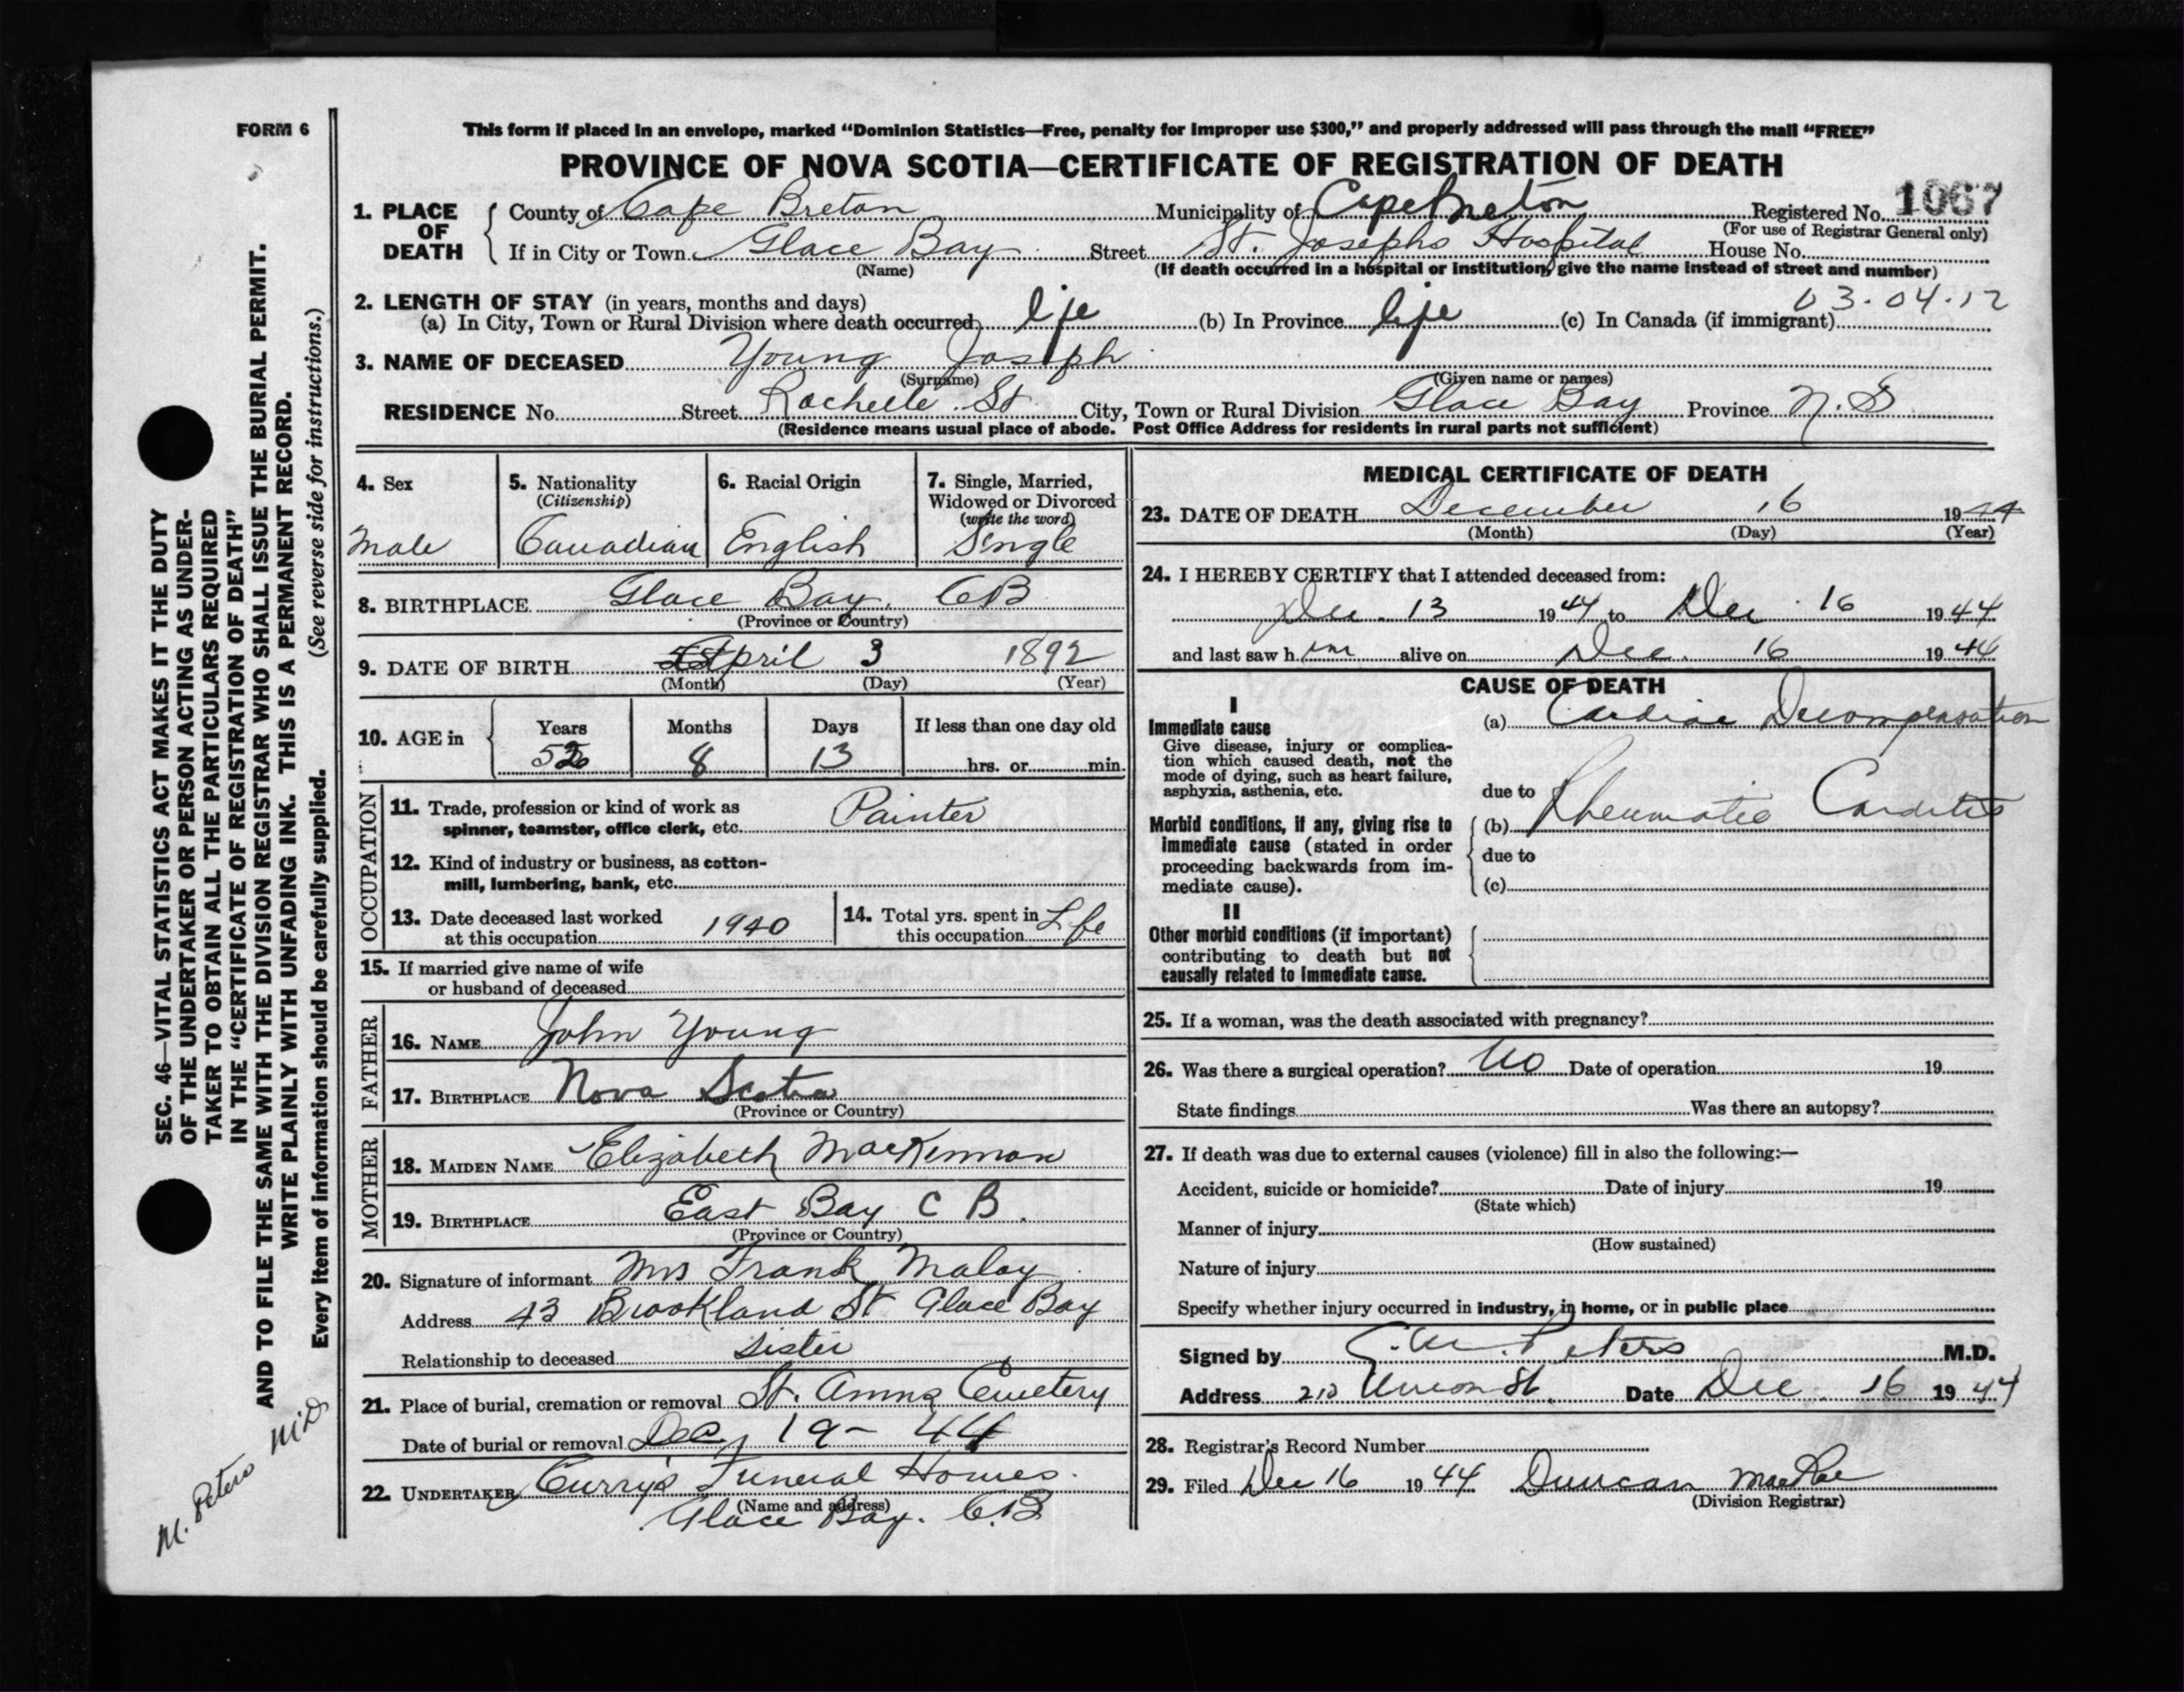 FORM 6
This form if placed in an envelope, marked “Dominion Statistics—Free, penalty for improper use $300,” and properly addressed will pass through the mail “FREE”
PROVINCE OF NOVA SCOTIA—CERTIFICATE OF REGISTRATION OF DEATH
1. PLACE OF DEATH
County of Cape Breton Municipality of Cape Breton Registered No. 1067
(For use of Registrar General only)
If in City or Town Glace Bay Street St. Josephs Hospital House No.
(Name) (If death occurred in a hospital or institution, give the name instead of street and number)
03-04-12
2. LENGTH OF STAY (in years, months and days)
(a) In City, Town or Rural Division where death occurred life (b) In Province life (c) In Canada (if immigrant)
3. NAME OF DECEASED Young Joseph
(Surname) (Given name or names)
RESIDENCE No. Street Rochelle St City, Town or Rural Division Glace Bay Province N.S
(Residence means usual place of abode. Post Office Address for residents in rural parts not sufficient)
4. Sex
Male
5. Nationality
(Citizenship)
Canadian
6. Racial Origin
English
7. Single, Married,
Widowed or Divorced
(write the word)
Single
8. BIRTHPLACE Glace Bay. CB
(Province or Country)
9. DATE OF BIRTH April 3 1892
(Month) (Day) (Year)
10. AGE in
Years Months Days If less than one day old
52 8 13 hrs. or min.
OCCUPATION
11. Trade, profession or kind of work as
spinner, teamster, office clerk, etc. Painter
12. Kind of industry or business, as cotton-
mill, lumbering, bank, etc.
13. Date deceased last worked
at this occupation 1940
14. Total yrs. spent in
this occupation Life
15. If married give name of wife
or husband of deceased
FATHER
16. NAME John Young
17. BIRTHPLACE Nova Scotia
(Province or Country)
MOTHER
18. MAIDEN NAME Elizabeth MacKinnon
19. BIRTHPLACE East Bay C B.
(Province or Country)
20. Signature of informant Mrs Frank Maloy
Address 43 Brookland St Glace Bay
Relationship to deceased sister
21. Place of burial, cremation or removal St. Anns Cemetery
Date of burial or removal Dec, 19- 44
22. UNDERTAKER Curry's Funeral Homes.
(Name and address)
Glace Bay. C.B
MEDICAL CERTIFICATE OF DEATH
23. DATE OF DEATH December 16 1944
(Month) (Day) (Year)
24. I HEREBY CERTIFY that I attended deceased from:
Dec. 13 1944 to Dec. 16 1944
and last saw him alive on Dec. 16 1944
CAUSE OF DEATH
I
Immediate cause
Give disease, injury or complica-
tion which caused death, not the
mode of dying, such as heart failure,
asphyxia, asthenia, etc.
(a) Cardiac Decompensation
due to
Morbid conditions, if any, giving rise to
immediate cause (stated in order
proceeding backwards from im-
mediate cause).
(b) Rheumatic Carditis
due to
(c)
II
Other morbid conditions (if important)
contributing to death but not
causally related to immediate cause.
25. If a woman, was the death associated with pregnancy?
26. Was there a surgical operation? No Date of operation 19
State findings Was there an autopsy?
27. If death was due to external causes (violence) fill in also the following:—
Accident, suicide or homicide? Date of injury 19
(State which)
Manner of injury
(How sustained)
Nature of injury
Specify whether injury occurred in industry, in home, or in public place
Signed by Peters M.D.
Address 212 Union St. Date Dec 16 1944
28. Registrar's Record Number
29. Filed Dec 16 1944 Duncan MacRae
(Division Registrar)
SEC. 46—VITAL STATISTICS ACT MAKES IT THE DUTY
OF THE UNDERTAKER OR PERSON ACTING AS UNDER-
TAKER TO OBTAIN ALL THE PARTICULARS REQUIRED
IN THE “CERTIFICATE OF REGISTRATION OF DEATH”
AND TO FILE THE SAME WITH THE DIVISION REGISTRAR WHO SHALL ISSUE THE BURIAL PERMIT.
WRITE PLAINLY WITH UNFADING INK. THIS IS A PERMANENT RECORD.
Every item of information should be carefully supplied. (See reverse side for instructions.)
M. Peters M.D